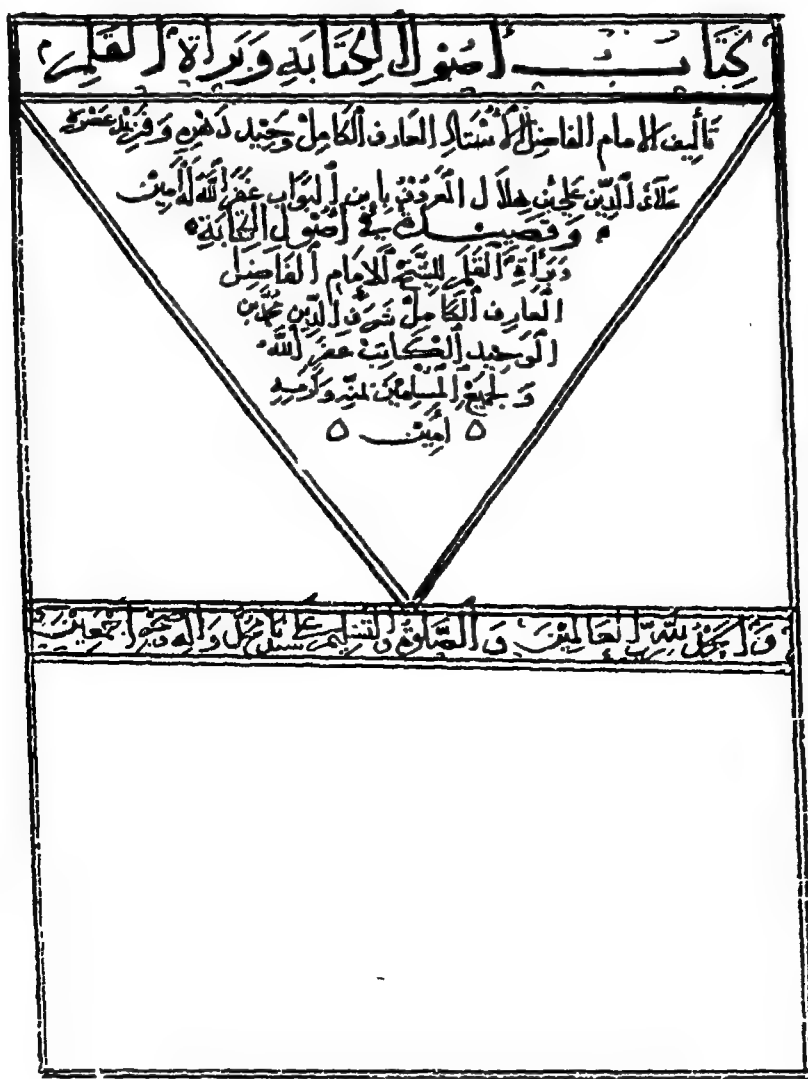 كتاب أصول الكتابة وبراة القلم
تأليف الامام الفاضل الأستاذ العارف الكامل وحيد دهره وفريد عصره
علائ الدين علي بن هلال المعروف بابن البواب غفر الله له آمين
وقصيدة في أصول الكتابة
وبراة القلم للشيخ الامام الفاضل
العارف الكامل شرف الدين محمد بن
الوحيد الكاتب غفر الله
ولجميع المسلمين بمنه وكرمه
أمين
والحمد لله رب العالمين والصلوة والتسليم على سيدنا محمد وآله وصحبه اجمعين